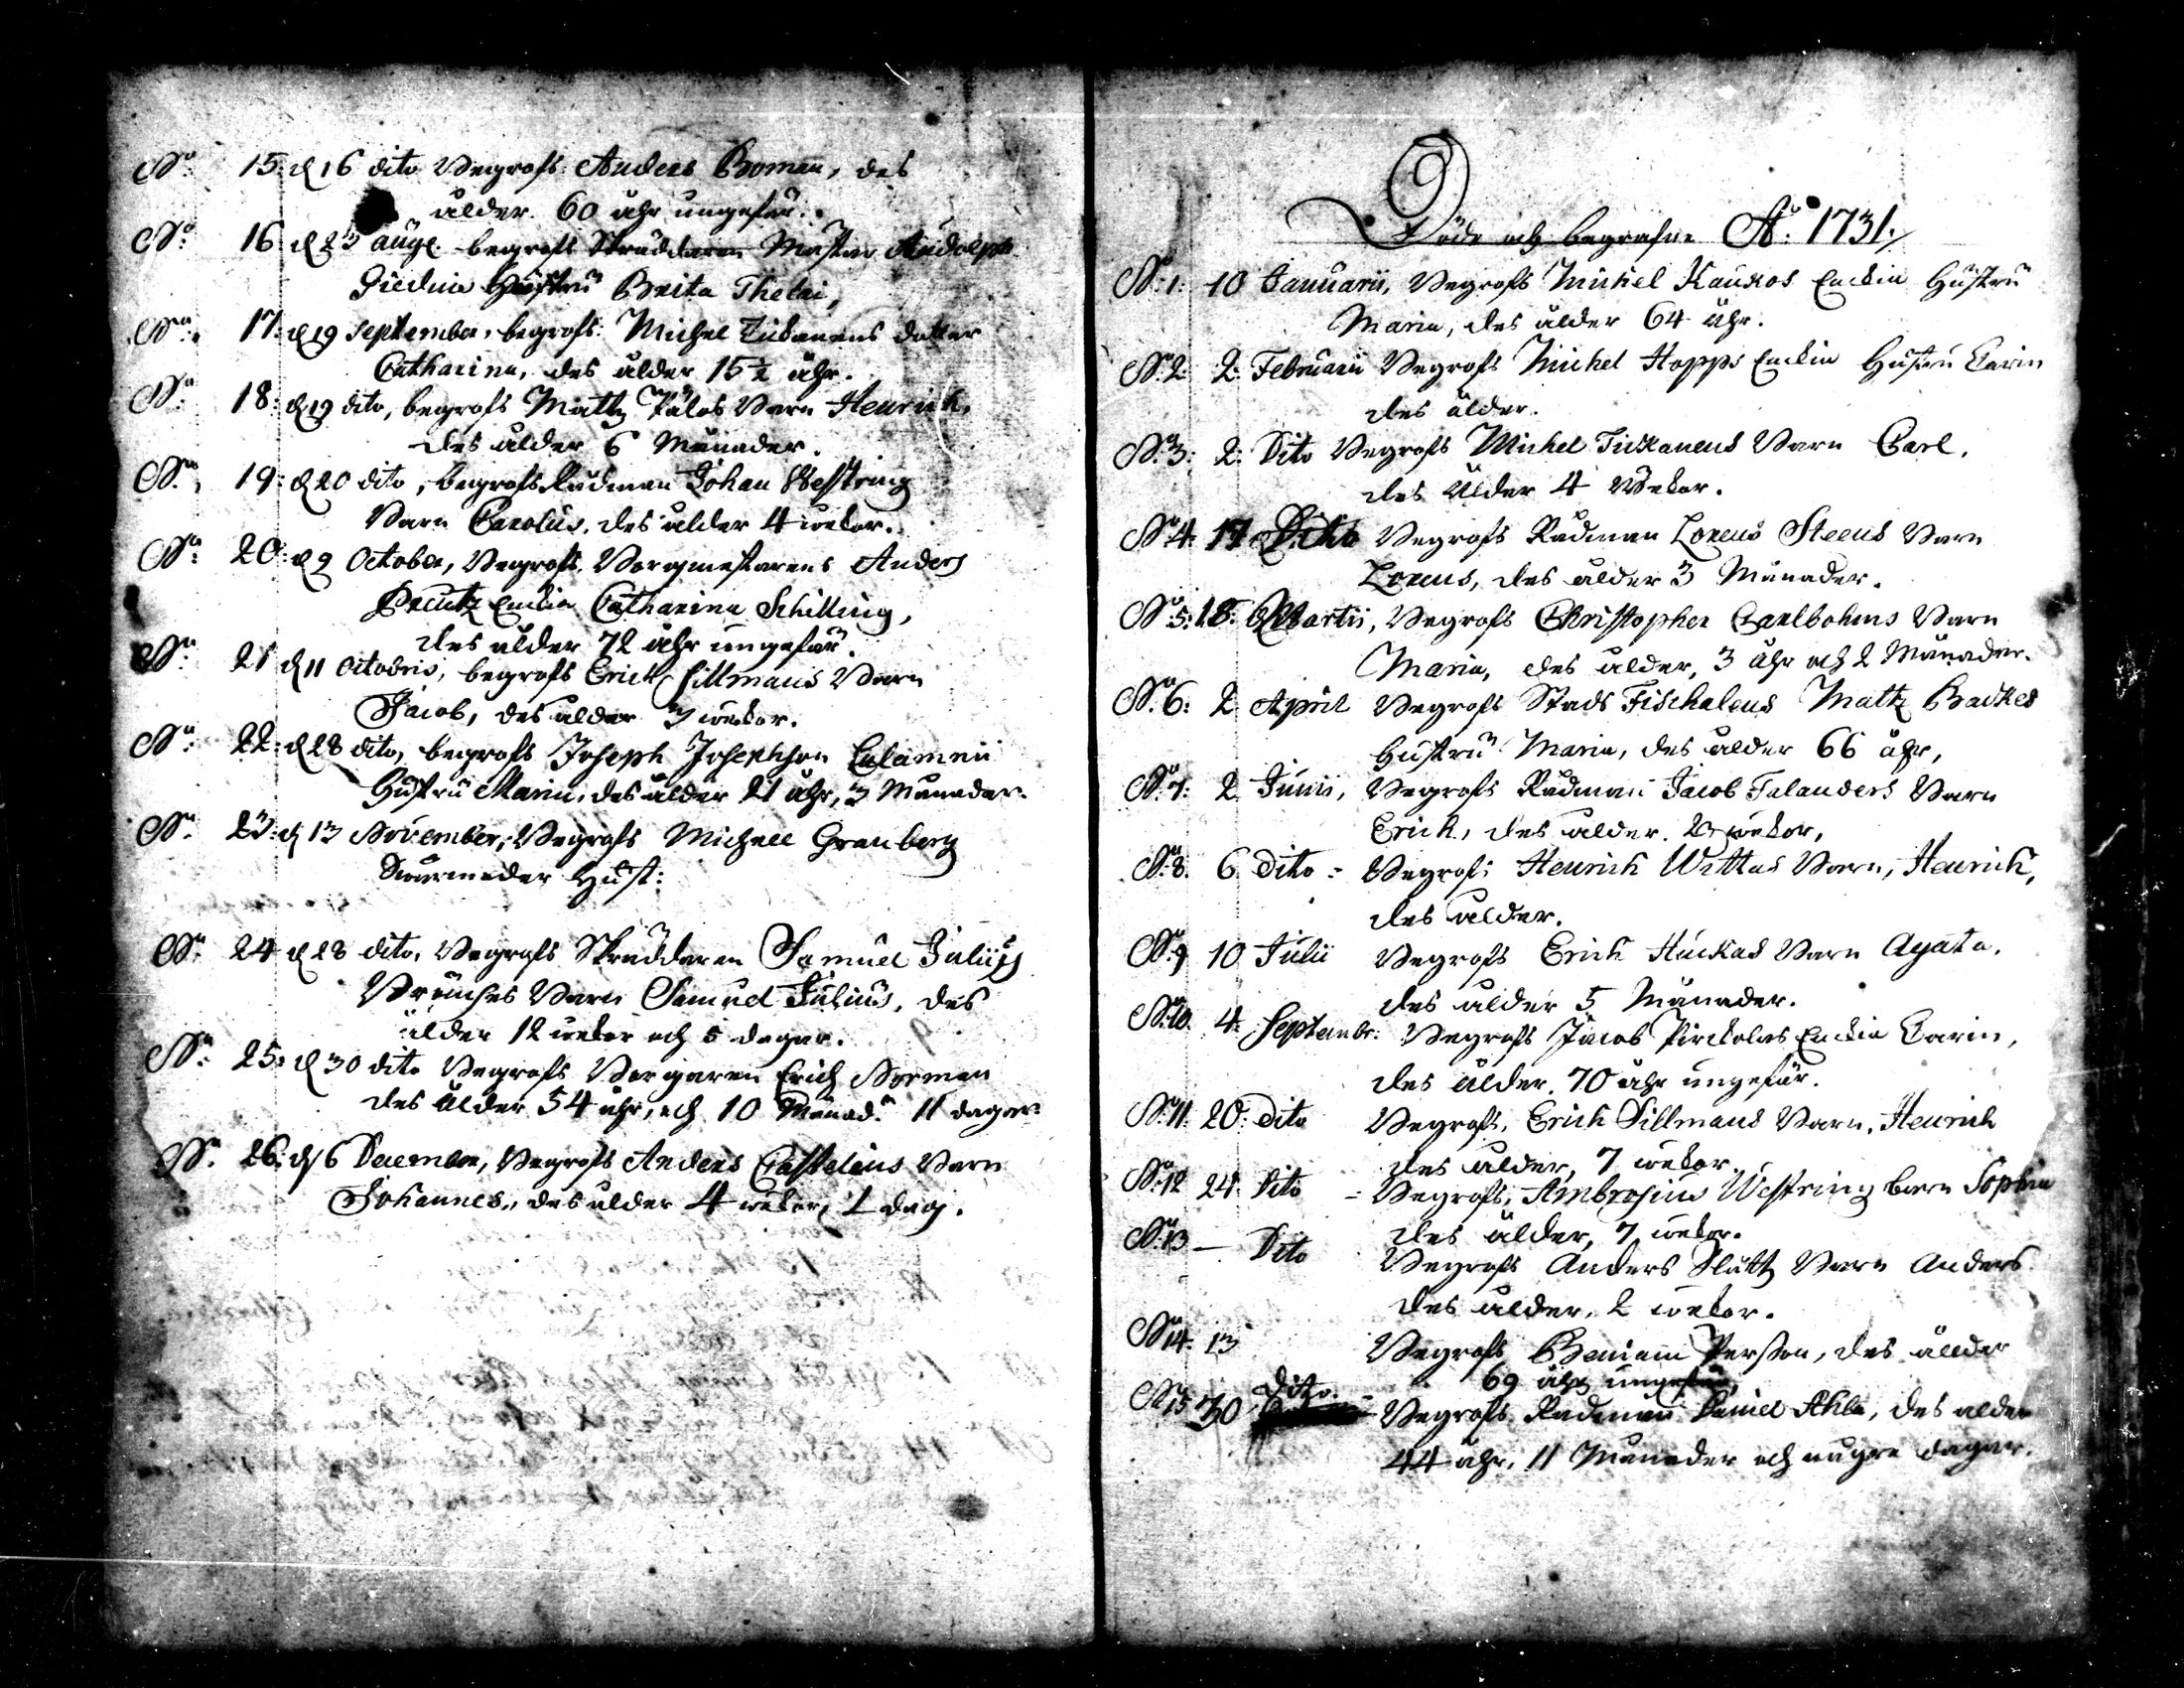 No: 15: d 16 dito Begrofs Anders Boman, des
ålder 60 åhr ungefär.
No: 16 d 23 aug. begrofs Skräddaren Mester Rudolph
Hustru Brita Thelai,
No: 17: d 19 September, begrofs: Michel Tickanens dotter
Catharina, des ålder 15½ åhr.
No: 18: d 19 dito, begrofs Mattz Pälos Barn Henrich,
des ålder 6 Månader.
No: 19: d 20 dito, begrofs Rådman Johan Westring
Barn Carolus, des ålder 4 wekor.
No: 20: d 9 October, Begrofs, Borgmestarens Anders
Preutz Enckia Catharina Schilling,
des ålder 72 åhr ungefär.
No: 21 d 11 Octobris, begrofs Erich Sillmans Barn
Jacob, des ålder 3 wekor.
No: 22: d 28 dito, begrofs Joseph Josephson Calamnii
Hustru Maria, des ålder 21 åhr, 3 Månader.
No: 23: d 13 November, Begrofs Michell Granberg
Swärmoder Hust:
No: 24 d 28 dito, Begrofs Skräddaren Samuel Julii
Barn Samuel Julius, des
ålder 12 wekor och 5 dagar.
No: 25: d 30 dito Begrofs Borgaren Erich Norman
des ålder 54 åhr, och 10 Månad. 11 dagar
No. 26: d 6 December, Begrofs Anders Castelius Barn
Johannes, des ålder 4 wekor, 1 dag.
Döde och begrafne Ao: 1731.
No: 1: 10 Januarii, Begrofs Michel Kaukos Enckia Hustru
Maria, des ålder 64 åhr.
No. 2: 2: Februarii Begrofs Michel Hopps Enckia Hustru Carin
des ålder.
No. 3: 2: Dito Begrofs Michel Tickanens Barn Carl,
des ålder 4 Wekor.
No. 4: 17 Dito Begrofs Rådman Lorens Steens Barn
Lorens, des ålder 3 Månader.
No. 5: 18: Martii, Begrofs Christopher Carlbohms Barn
Maria, des ålder, 3 åhr och 2 Månader.
No. 6: 2 April Begrofs Stads Fischalens Mattz Backes
Hustru Maria, des ålder 66 åhr,
No. 7: 2 Junii, Begrofs Rådman Jacob Falanders Barn
Erich, des ålder. wekor,
No. 8. 6 Dito = Begrofs Henrich Wittas Barn, Henrich,
des ålder.
No. 9 10 Julii Begrofs Erich Huckas Barn Agata,
des ålder 5 Månader.
No. 10. 4: Septembr: Begrofs Jacob Pirckolas Enckia Carin,
des ålder 70 åhr ungefär.
No. 11: 20: Dito Begrofs, Erich Sillmans Barn, Henrich
des ålder, 7 wekor.
No. 12 24: Dito = Begrofs, Ambrosius Westring barn Sophia
des ålder, 7 wekor.
No. 13 — Dito Begrofs Anders Slätt Barn Anders
des ålder, 2 wekor.
No. 14: 13 Begrofs Beniam Person, des ålder
69 åhr ungefär,
No. 15 30 Dito. = Begrofs Rådman Daniel Ahla, des ålder
44 åhr, 11 Månader och någre dagar.